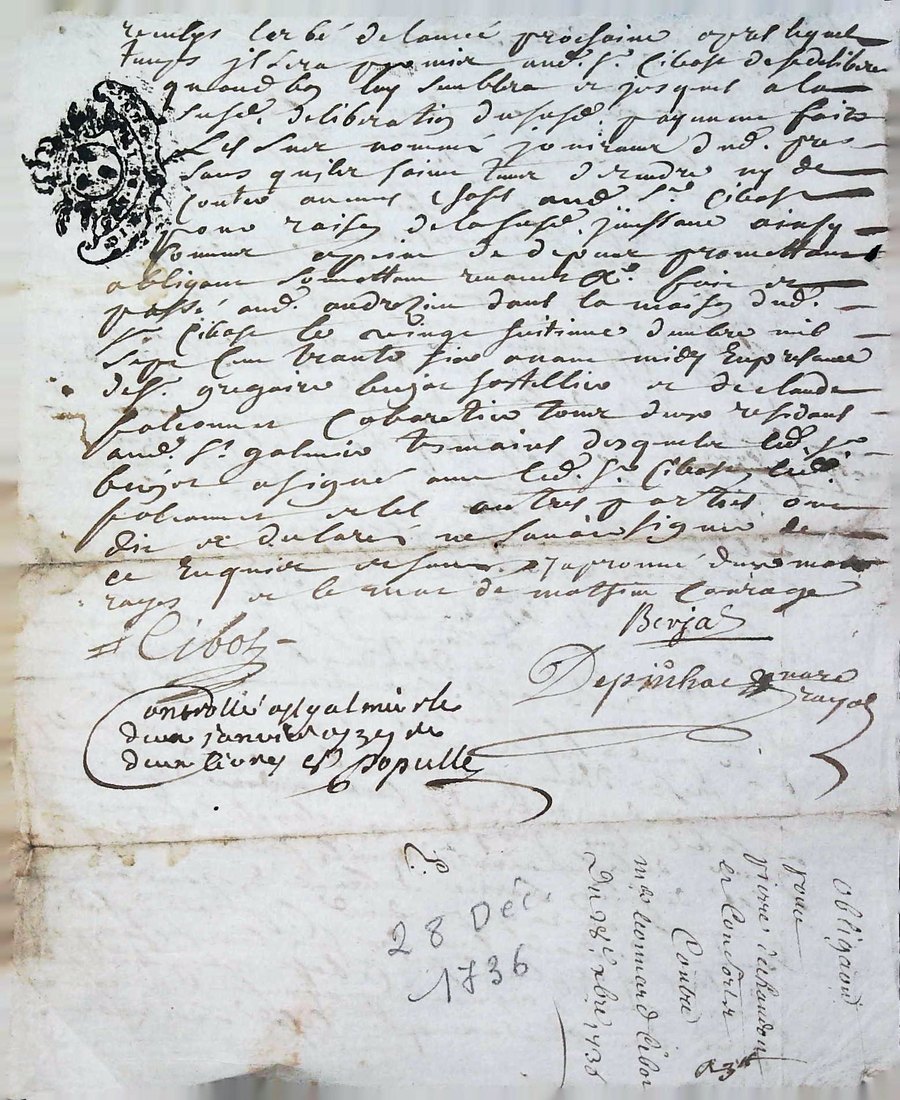 prochaine apres lequel
temps il sera permis aud. Sr. Cibost de se deliberer
quand bon luy semblera et jusques a la
susd. deliberation du susd. payement faite
les sus nommé jouiront dud. pre
sans quils soint tenus de rendre ny de
contes aucunes choses aud. Sr. Cibost
pour raison de la susd. jouissance ainsy
comme a peine de depens promettant
obligant somettant renoncant fait et
passé aud. andrezieu dans la maison dud.
Sr. Cibost le vingt huitieme dembre mil
sept cent trante six avant midy En presance
de Sr. gregoire berjat hostellier et de claude
falconnet Cabaretier tous deux residans
aud. St. galmier temoins desquels led. Sr.
berjat a signé avec led. Sr. Cibost led.
falconnet et les autres parties ont
dit et declaré ne savoir signer de
ce Enquis et
rayés et le mot de
Cibost
Berjat
Depinhac nore
royal
Controllé a St galmier le
deux janvier 1737 reçu
deux livres Populle
28 Déc.
1736
obligaon
pour
pierre
et Consorts
Contre
me leonnard Cibost
Du 28e xbre 1736